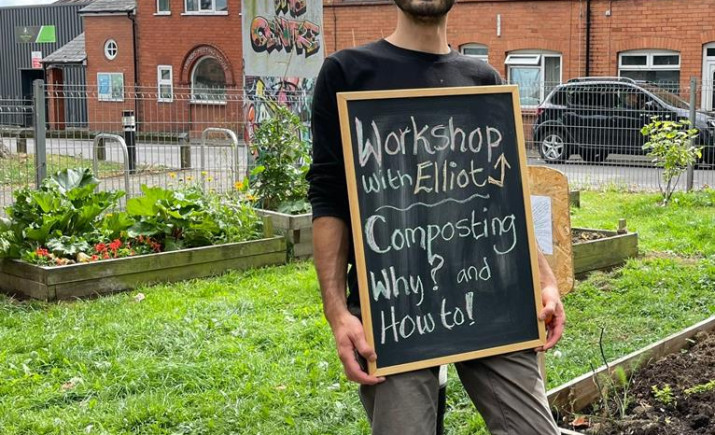 Workshop
with Elliot
Composting
Why? and
How to!